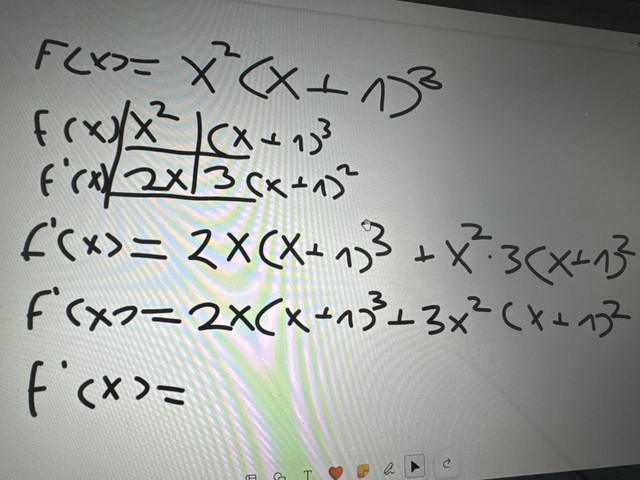 F(x)= x²(x+1)³
f(x) | x² | (x+1)³
f'(x) | 2x | 3(x+1)²
f'(x)= 2x(x+1)³ + x²·3(x+1)²
f'(x)= 2x(x+1)³+3x²(x+1)²
f'(x)=
T